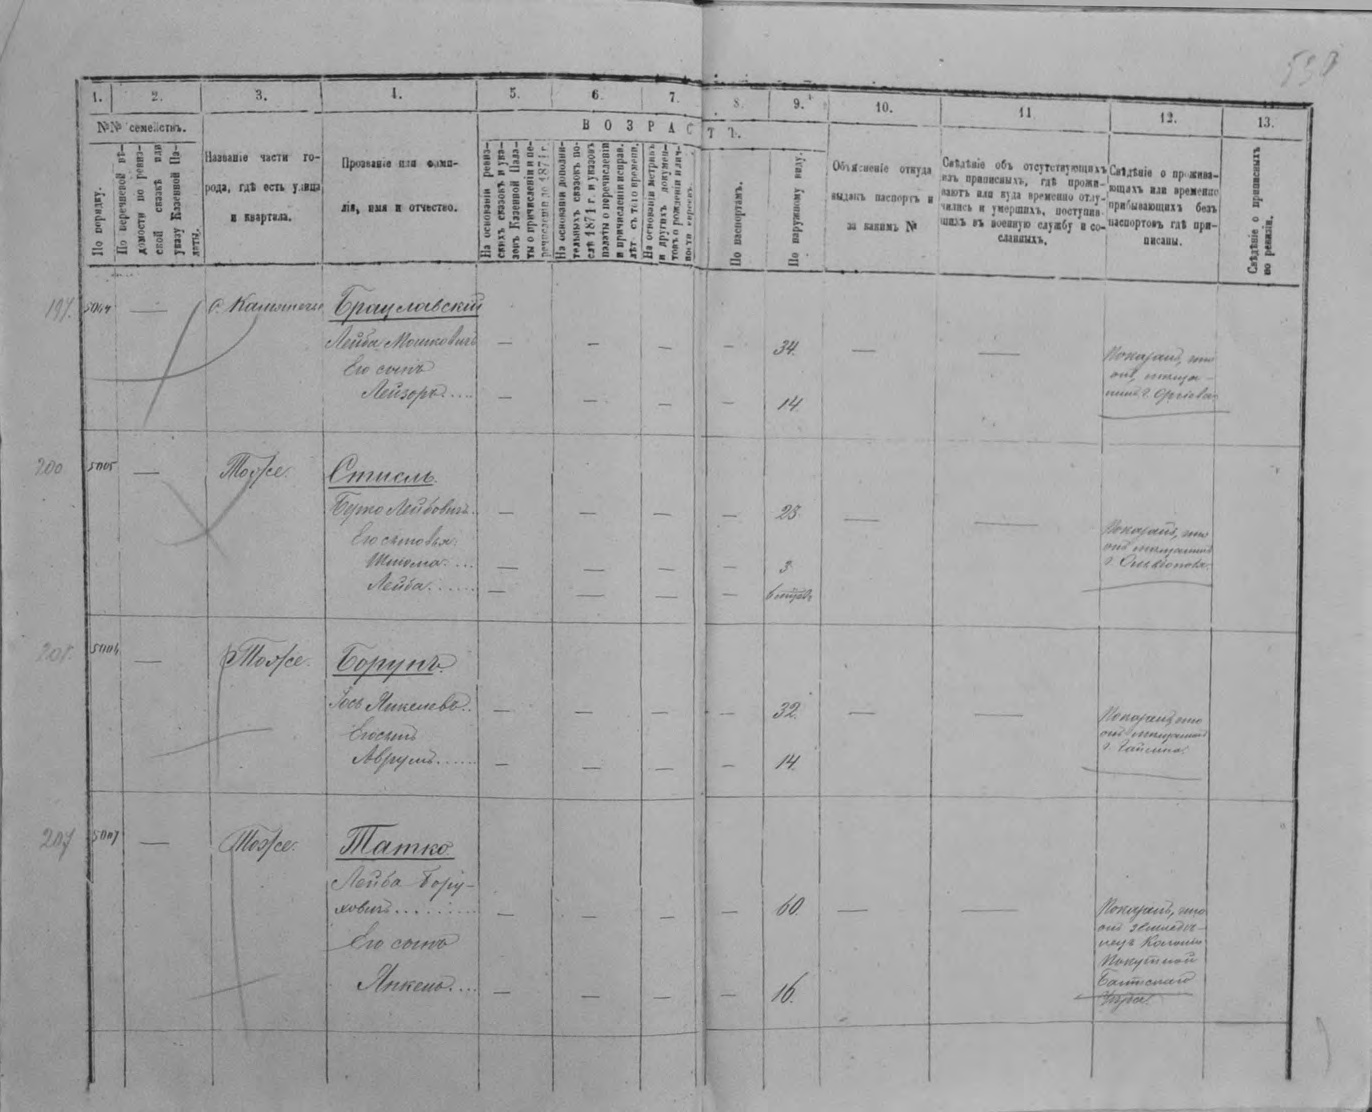 530
1.
2.
3.
4.
5.
6.
7.
8.
9.
10.
11
12.
13.
№№ семействъ.
По порядку.
По перечневой вѣ-
домости по ревиз-
ской сказкѣ или
указу Казенной Па-
латы.
Названіе части го-
рода, гдѣ есть улица
и квартала.
Прозваніе или фами-
лія, имя и отчество.
ВОЗРАСТЪ.
На основаніи ревиз-
скихъ сказокъ и ука-
зовъ Казенной Пала-
ты о причисленіи и пе-
речисленіи до 1874 г.
На основаніи дополни-
тельныхъ сказокъ по-
слѣ 1874 г. и указовъ
палаты о перечисленіи
и причисленіи исправ.
лѣт. съ того времени.
На основаніи метрикъ
и другихъ докумен-
товъ о рожденіи и лич-
ности евреевъ.
По паспортамъ.
По наружному виду.
Объясненіе откуда
выданъ паспортъ и
за какимъ №
Свѣдѣніе объ отсутствующихъ
изъ приписныхъ, гдѣ прожи-
ваютъ или куда временно отлу-
чились и умершихъ, поступив-
шихъ въ военную службу и со-
сланныхъ.
Свѣдѣніе о прожива-
ющихъ или временно
прибывающихъ безъ
паспортовъ гдѣ при-
писаны.
Свѣдѣніе о приписныхъ
по ревизіи.
197.
5004
—
Брацлавскій
Лейба Мошковичъ
— — — — 34. — —
Его сынъ
Лейзоръ....
— — — — 14.
Показалъ, что
онъ мѣща-
нинъ г. Оргѣева
200
5005
—
Тоже.
Стисль.
Бурко Лейбовичъ..
— — — — 23. — —
Его сыновья
Шлома....
— — — — 3.
Лейба......
— — — —
Показалъ, что
онъ мѣщанинъ
г. Ольвіополя.
5006
—
Тоже.
Борунъ.
Іось Янкелевъ..
— — — — 32. — —
Его сынъ
Аврумъ......
— — — — 14.
Показалъ, что
онъ мѣщанинъ
г. Гайсина.
207
5007
—
Тоже.
Татко
Лейба Бору-
ховичъ........
— — — — 60. — —
Его сынъ
Янкель....
— — — — 16.
Показалъ, что
онъ земледѣ-
лецъ Колоніи
Покутной
Балтскаго
уѣзда.